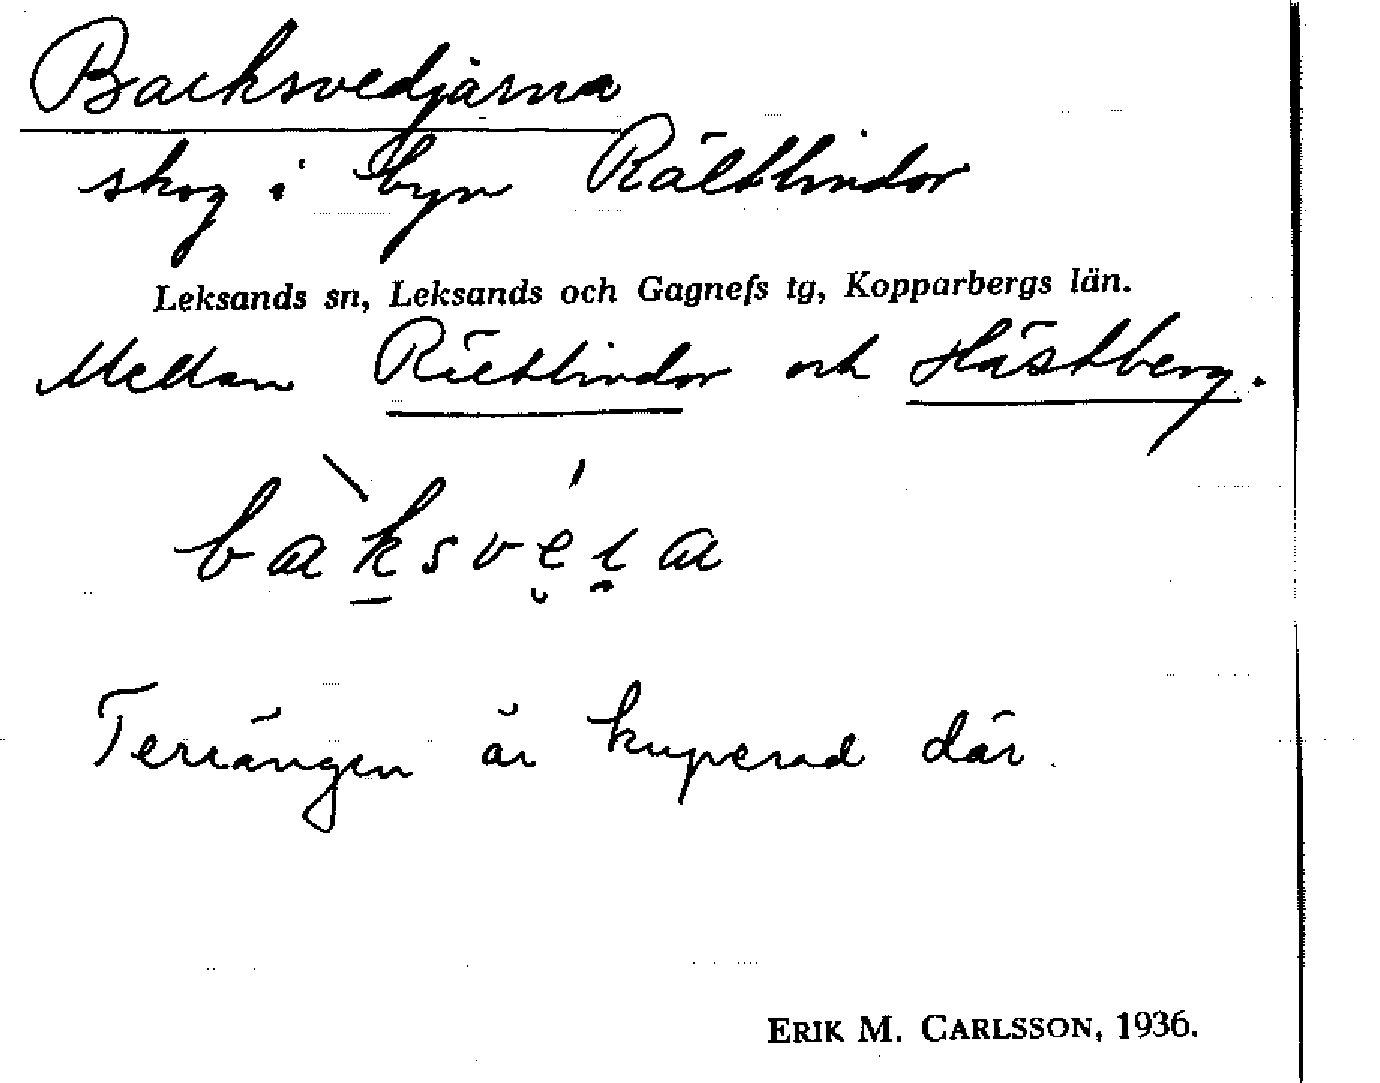 Backsvedjärna
skog i byn Rältlindor
Leksands sn, Leksands och Gagnefs tg, Kopparbergs län.
Mellan Rältlindor och Hästberg.
Terrängen är kuperad där.
ERIK M. CARLSSON, 1936.